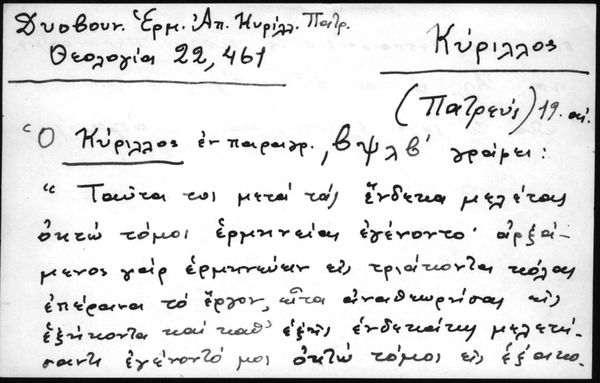 Δυοβουν. Ἑρμ. Ἀπ. Κυρίλλ. Πατρ.
Θεολογία 22, 461
Κύριλλος
(Πατρεύς) 19. αἰ.
Ὁ Κύριλλος ἐν παραγρ. ͵βψλβʹ γράφει:
“ Ταῦτα τοι μετὰ τὰς ἕνδεκα μελέτας
ὀκτὼ τόμοι ἑρμηνείας ἐγένοντο· ἀρξά-
μενος γὰρ ἑρμηνεύειν εἰς τριάκοντα κόλας
ἐπέρανα τὸ ἔργον, εἶτα ἀναθεωρήσας εἰς
ἑξήκοντα καὶ καθ’ ἑξῆς ἑνδεκάκις μελετή-
σαντι ἐγένοντό μοι ὀκτὼ τόμοι εἰς ἑξακο.